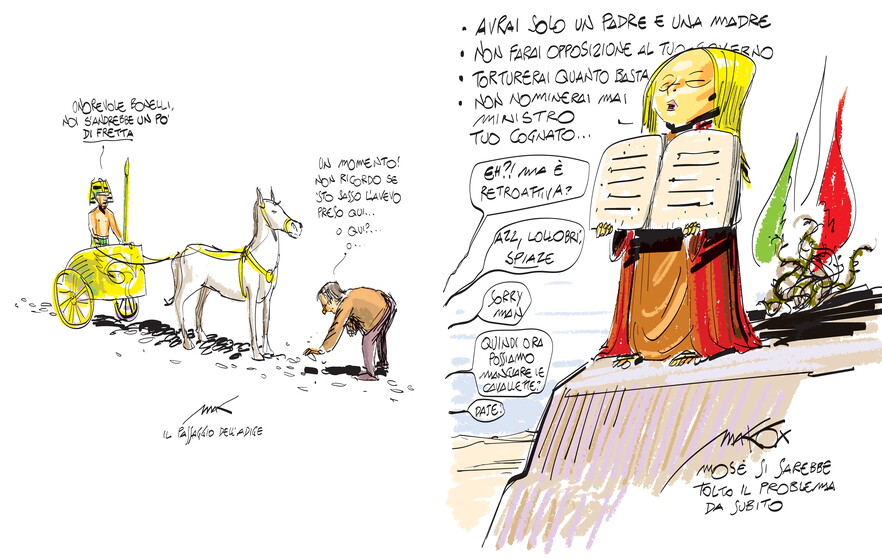 ONOREVOLE BONELLI,
NOI S'ANDREBBE UN PO'
DI FRETTA
UN MOMENTO!
NON RICORDO SE
'STO SASSO L'AVEVO
PRESO QUI...
O QUI?...
O...
MAK
IL PASSAGGIO DELL'ADIGE
• AVRAI SOLO UN PADRE E UNA MADRE
• NON FARAI OPPOSIZIONE AL TUO GOVERNO
• TORTURERAI QUANTO BASTA
• NON NOMINERAI MAI
MINISTRO
TUO COGNATO...
EH?! MA È
RETROATTIVA?
AZZ, LOLLOBRÌ,
SPIAZE
SORRY
MAN
QUINDI ORA
POSSIAMO
MANGIARE LE
CAVALLETTE?
DAJE!
MAKOX
MOSÈ SI SAREBBE
TOLTO IL PROBLEMA
DA SUBITO